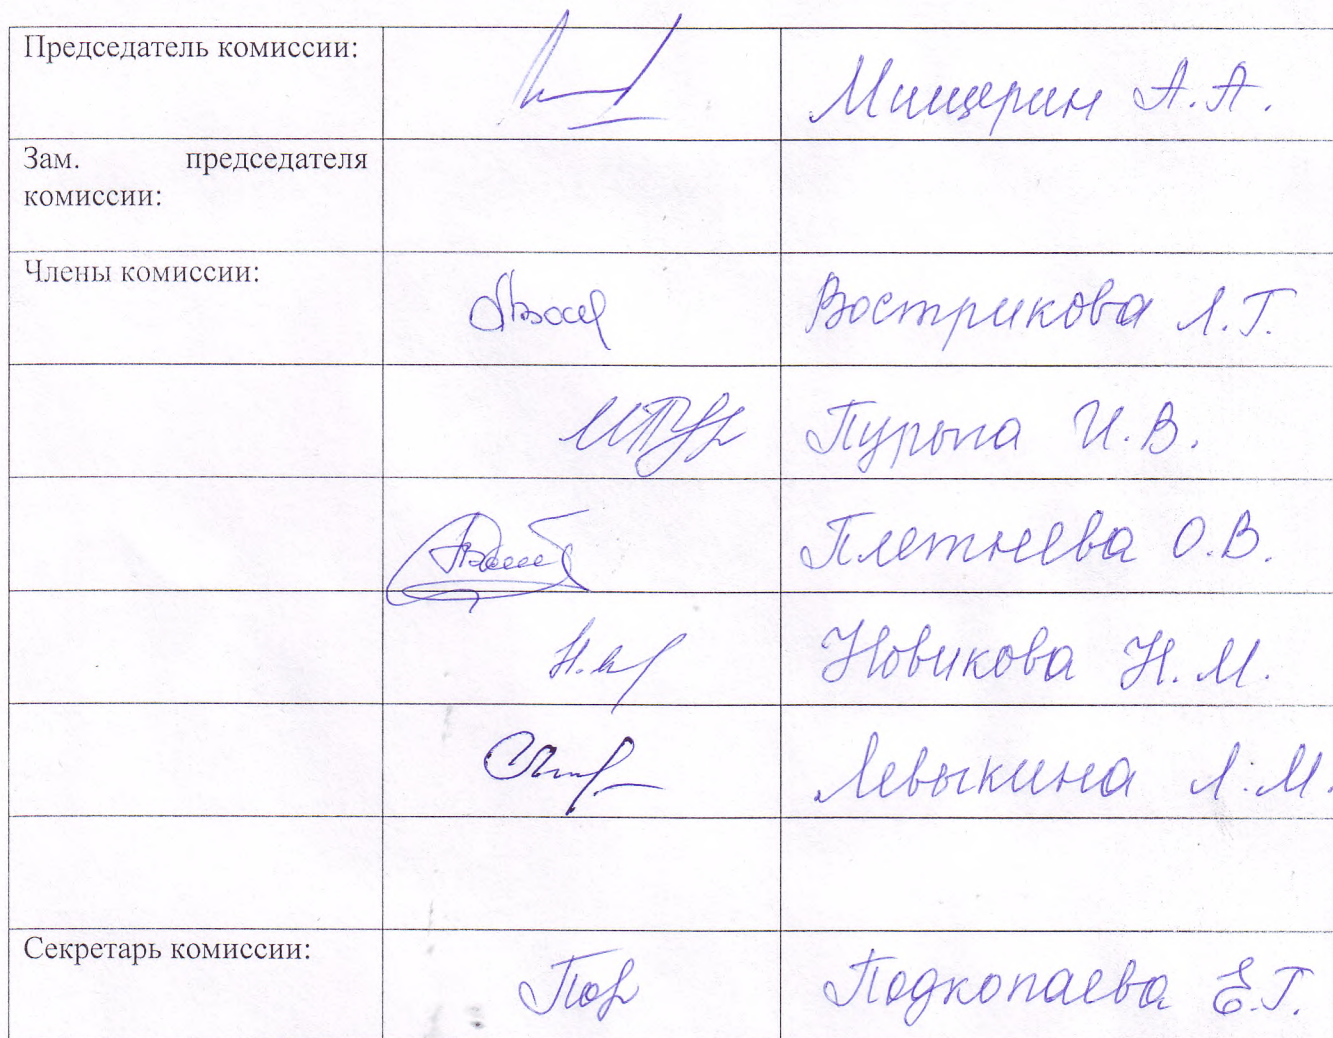 Председатель комиссии: Мищерин А.А.
Зам. председателя
комиссии:
Члены комиссии: Вострикова Л.Г.
И.В.
Плетнева О.В.
Новикова Н.М.
Левыкина Л.М.
Секретарь комиссии: Подкопаева Е.Г.